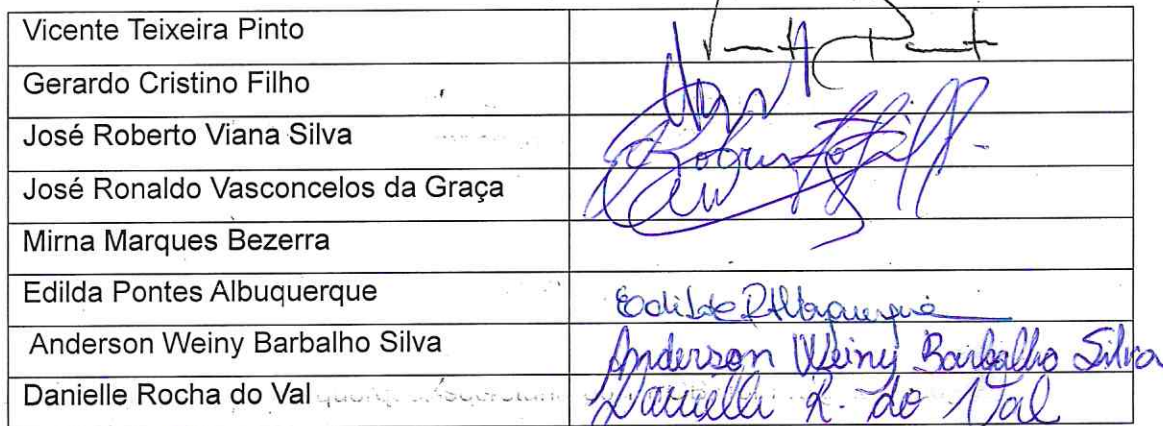 Vicente Teixeira Pinto
Gerardo Cristino Filho
José Roberto Viana Silva
José Ronaldo Vasconcelos da Graça
Mirna Marques Bezerra
Edilda Pontes Albuquerque Edilda P Albuquerque
Anderson Weiny Barbalho Silva Anderson Weiny Barbalho Silva
Danielle Rocha do Val Danielle R. do Val